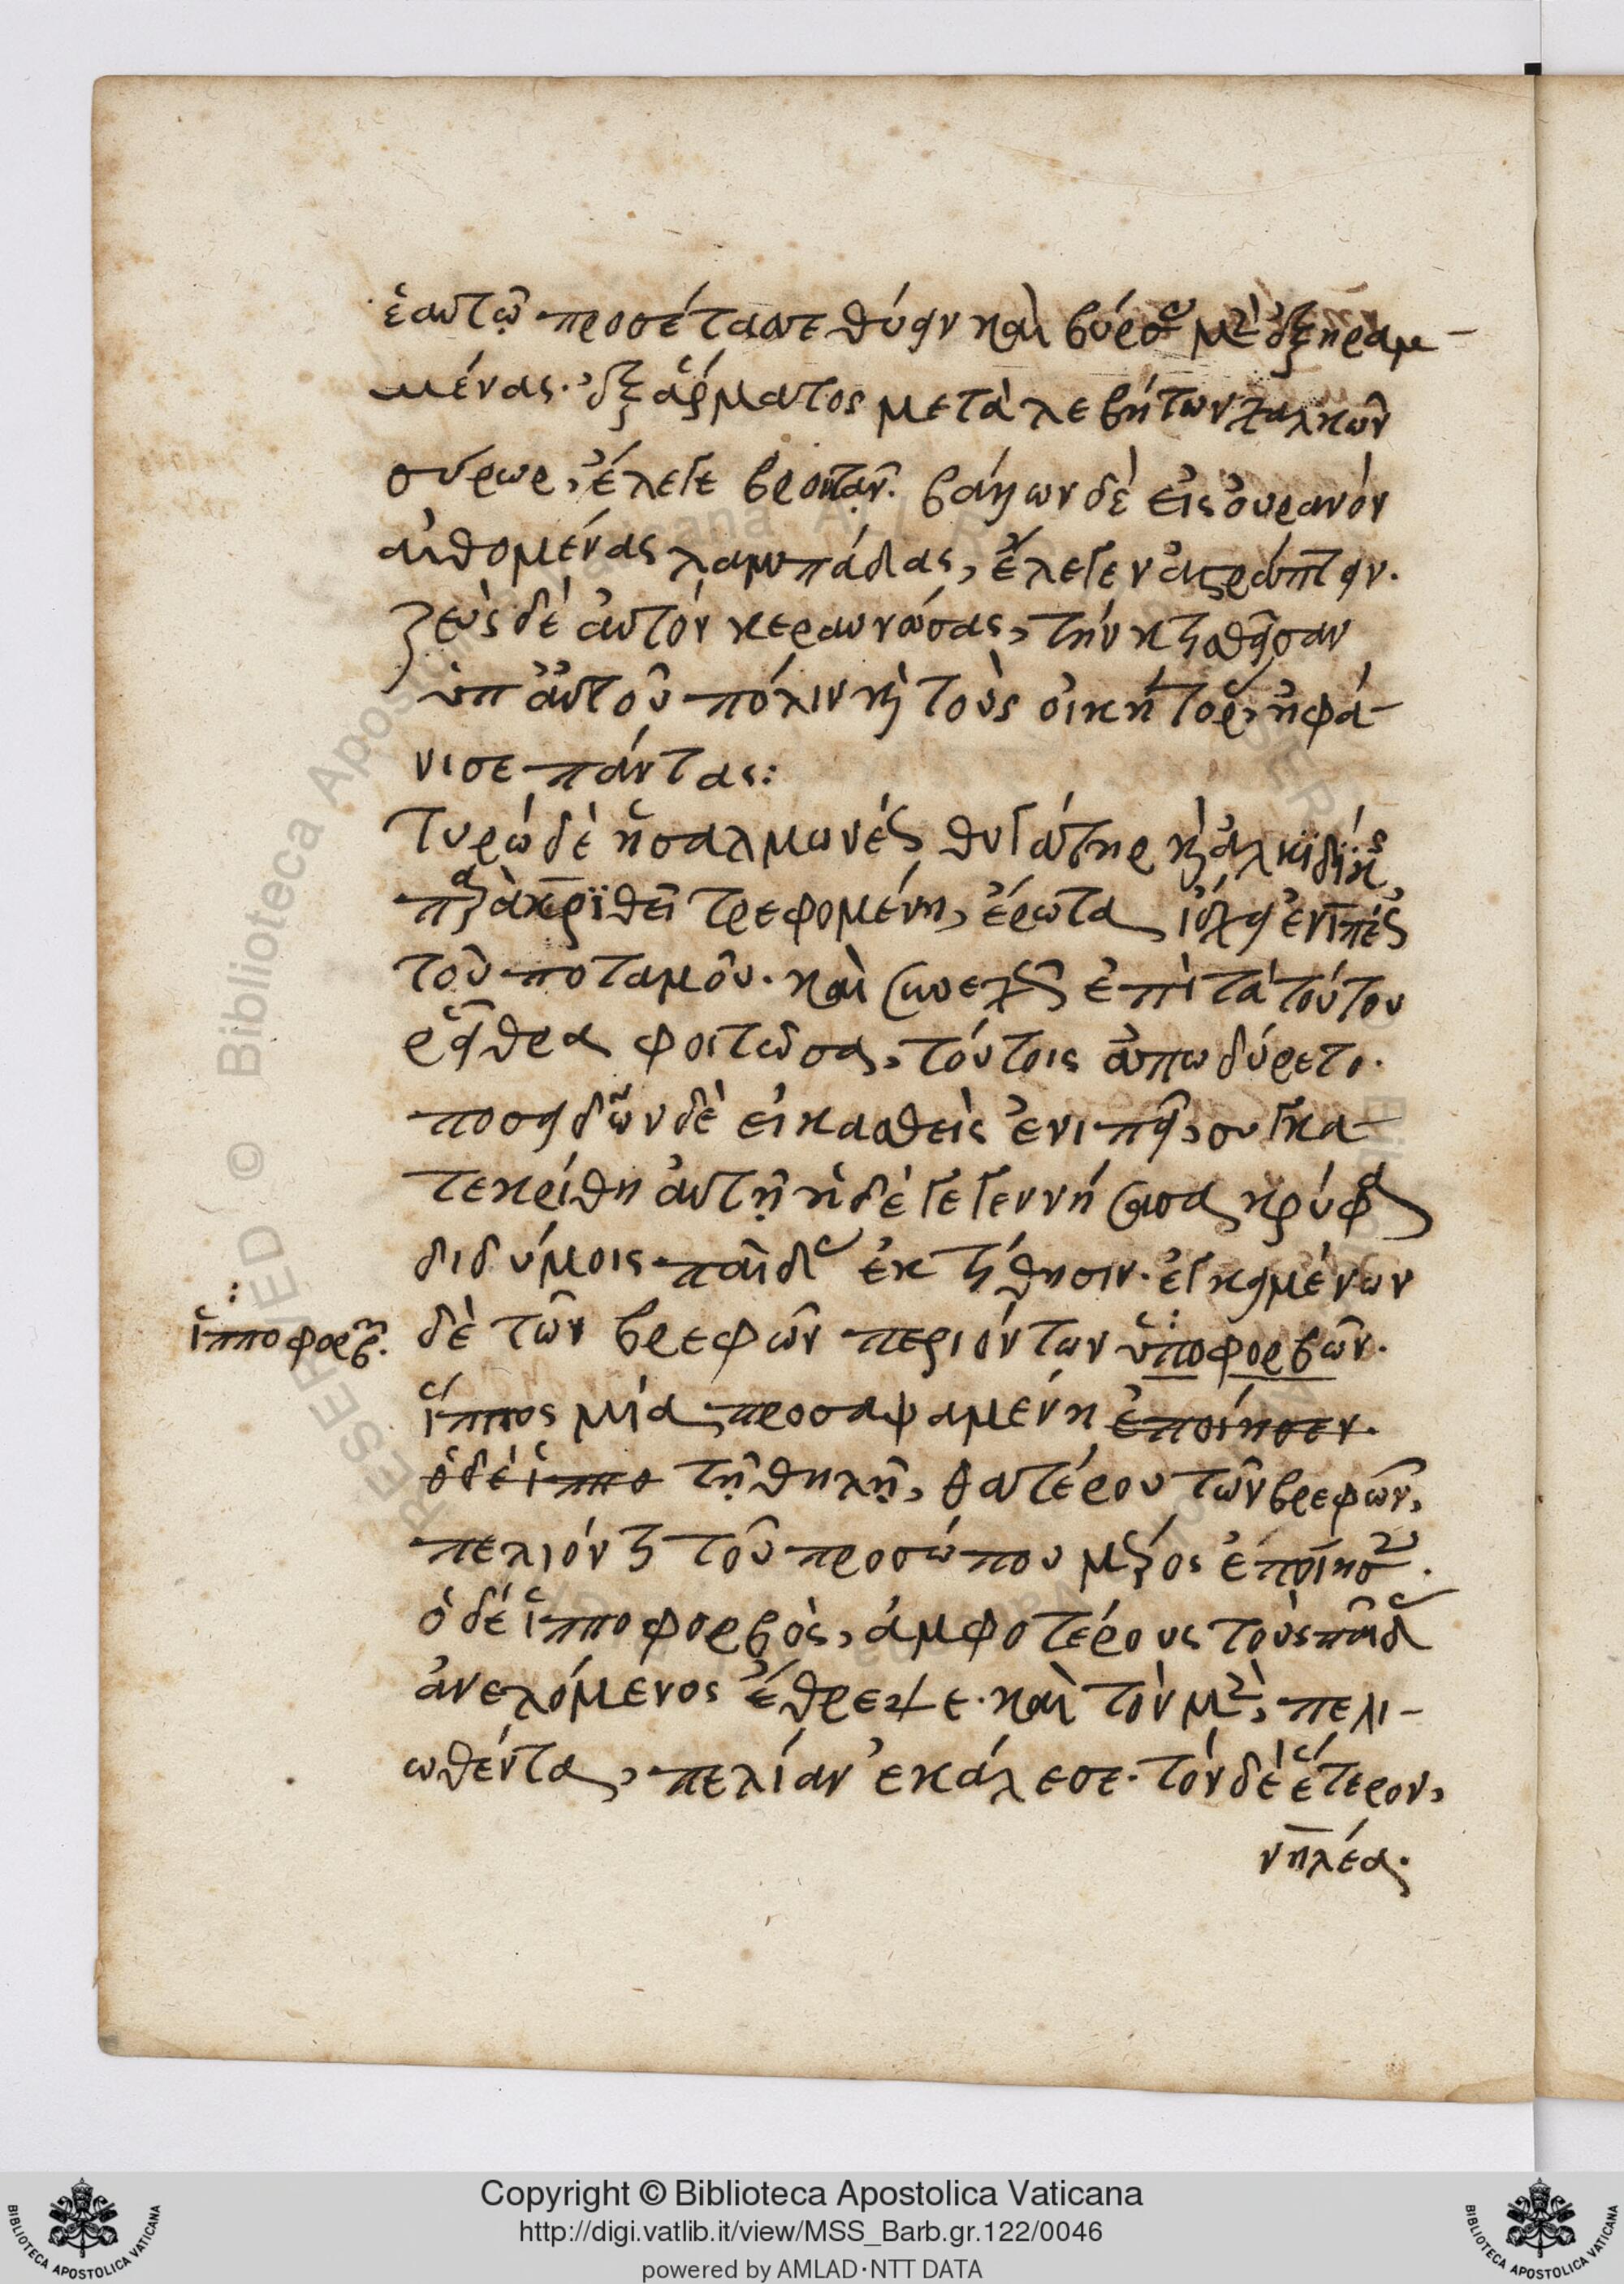 ἑαυτῷ προσέταττε θύειν καὶ βύρσας μὲν ἐξηραμ-
μένας. ἐξ ἅρματος μετὰ λεβήτων χαλκῶν
σύρων, ἔλεγε βροντᾶν. βάλλων δὲ εἰς οὐρανὸν
αἰθομένας λαμπάδας, ἔλεγεν ἀστράπτειν.
ζεὺς δὲ αὐτὸν κεραυνώσας, τὴν κτισθεῖσαν
ὑπ' αὐτοῦ πόλιν καὶ τοὺς οἰκήτορας ἠφά-
νισε πάντας:
Τυρὼ δὲ ἡ σαλμωνέως θυγάτηρ καὶ ἀλκιδίκης
παρὰ κρϊθεῖ τρεφομένη, ἔρωτα ἴσχει ἐνιπέως
τοῦ ποταμοῦ. καὶ συνεχῶς ἐπὶ τὰ τούτου
ῥεῖθρα φοιτῶσα, τούτοις ἀπωδύρετο.
ποσειδῶν δὲ εἰκασθεὶς ἐνιπεῖ, συγκα-
τεκρίθη αὐτῇ ἡ δὲ γεγεννήσασα κρύφα
διδύμοις παῖδας ἐκτίθησιν. ἐγκειμένων
δὲ τῶν βρεφῶν περιόντων ὑποφορβῶν.
ἱπποφορβῶν.
ἵππος μία προσαψαμένη ἐποίησεν.
ὁ δὲ ἱππο τῇ θηλῇ, θατέρου τῶν βρεφῶν,
πελιόν τι τοῦ προσώπου μέρος ἐποίησεν.
ὁ δὲ ἱπποφορβὸς, ἀμφοτέρους τοὺς παῖδας
ἀνελόμενος ἔθρεψε. καὶ τὸν μὲν, πελι-
ωθέντα, πελίαν ἐκάλεσε. τὸν δὲ ἕτερον,
νηλέα.
Copyright © Biblioteca Apostolica Vaticana
http://digi.vatlib.it/view/MSS_Barb.gr.122/0046
powered by AMLAD·NTT DATA